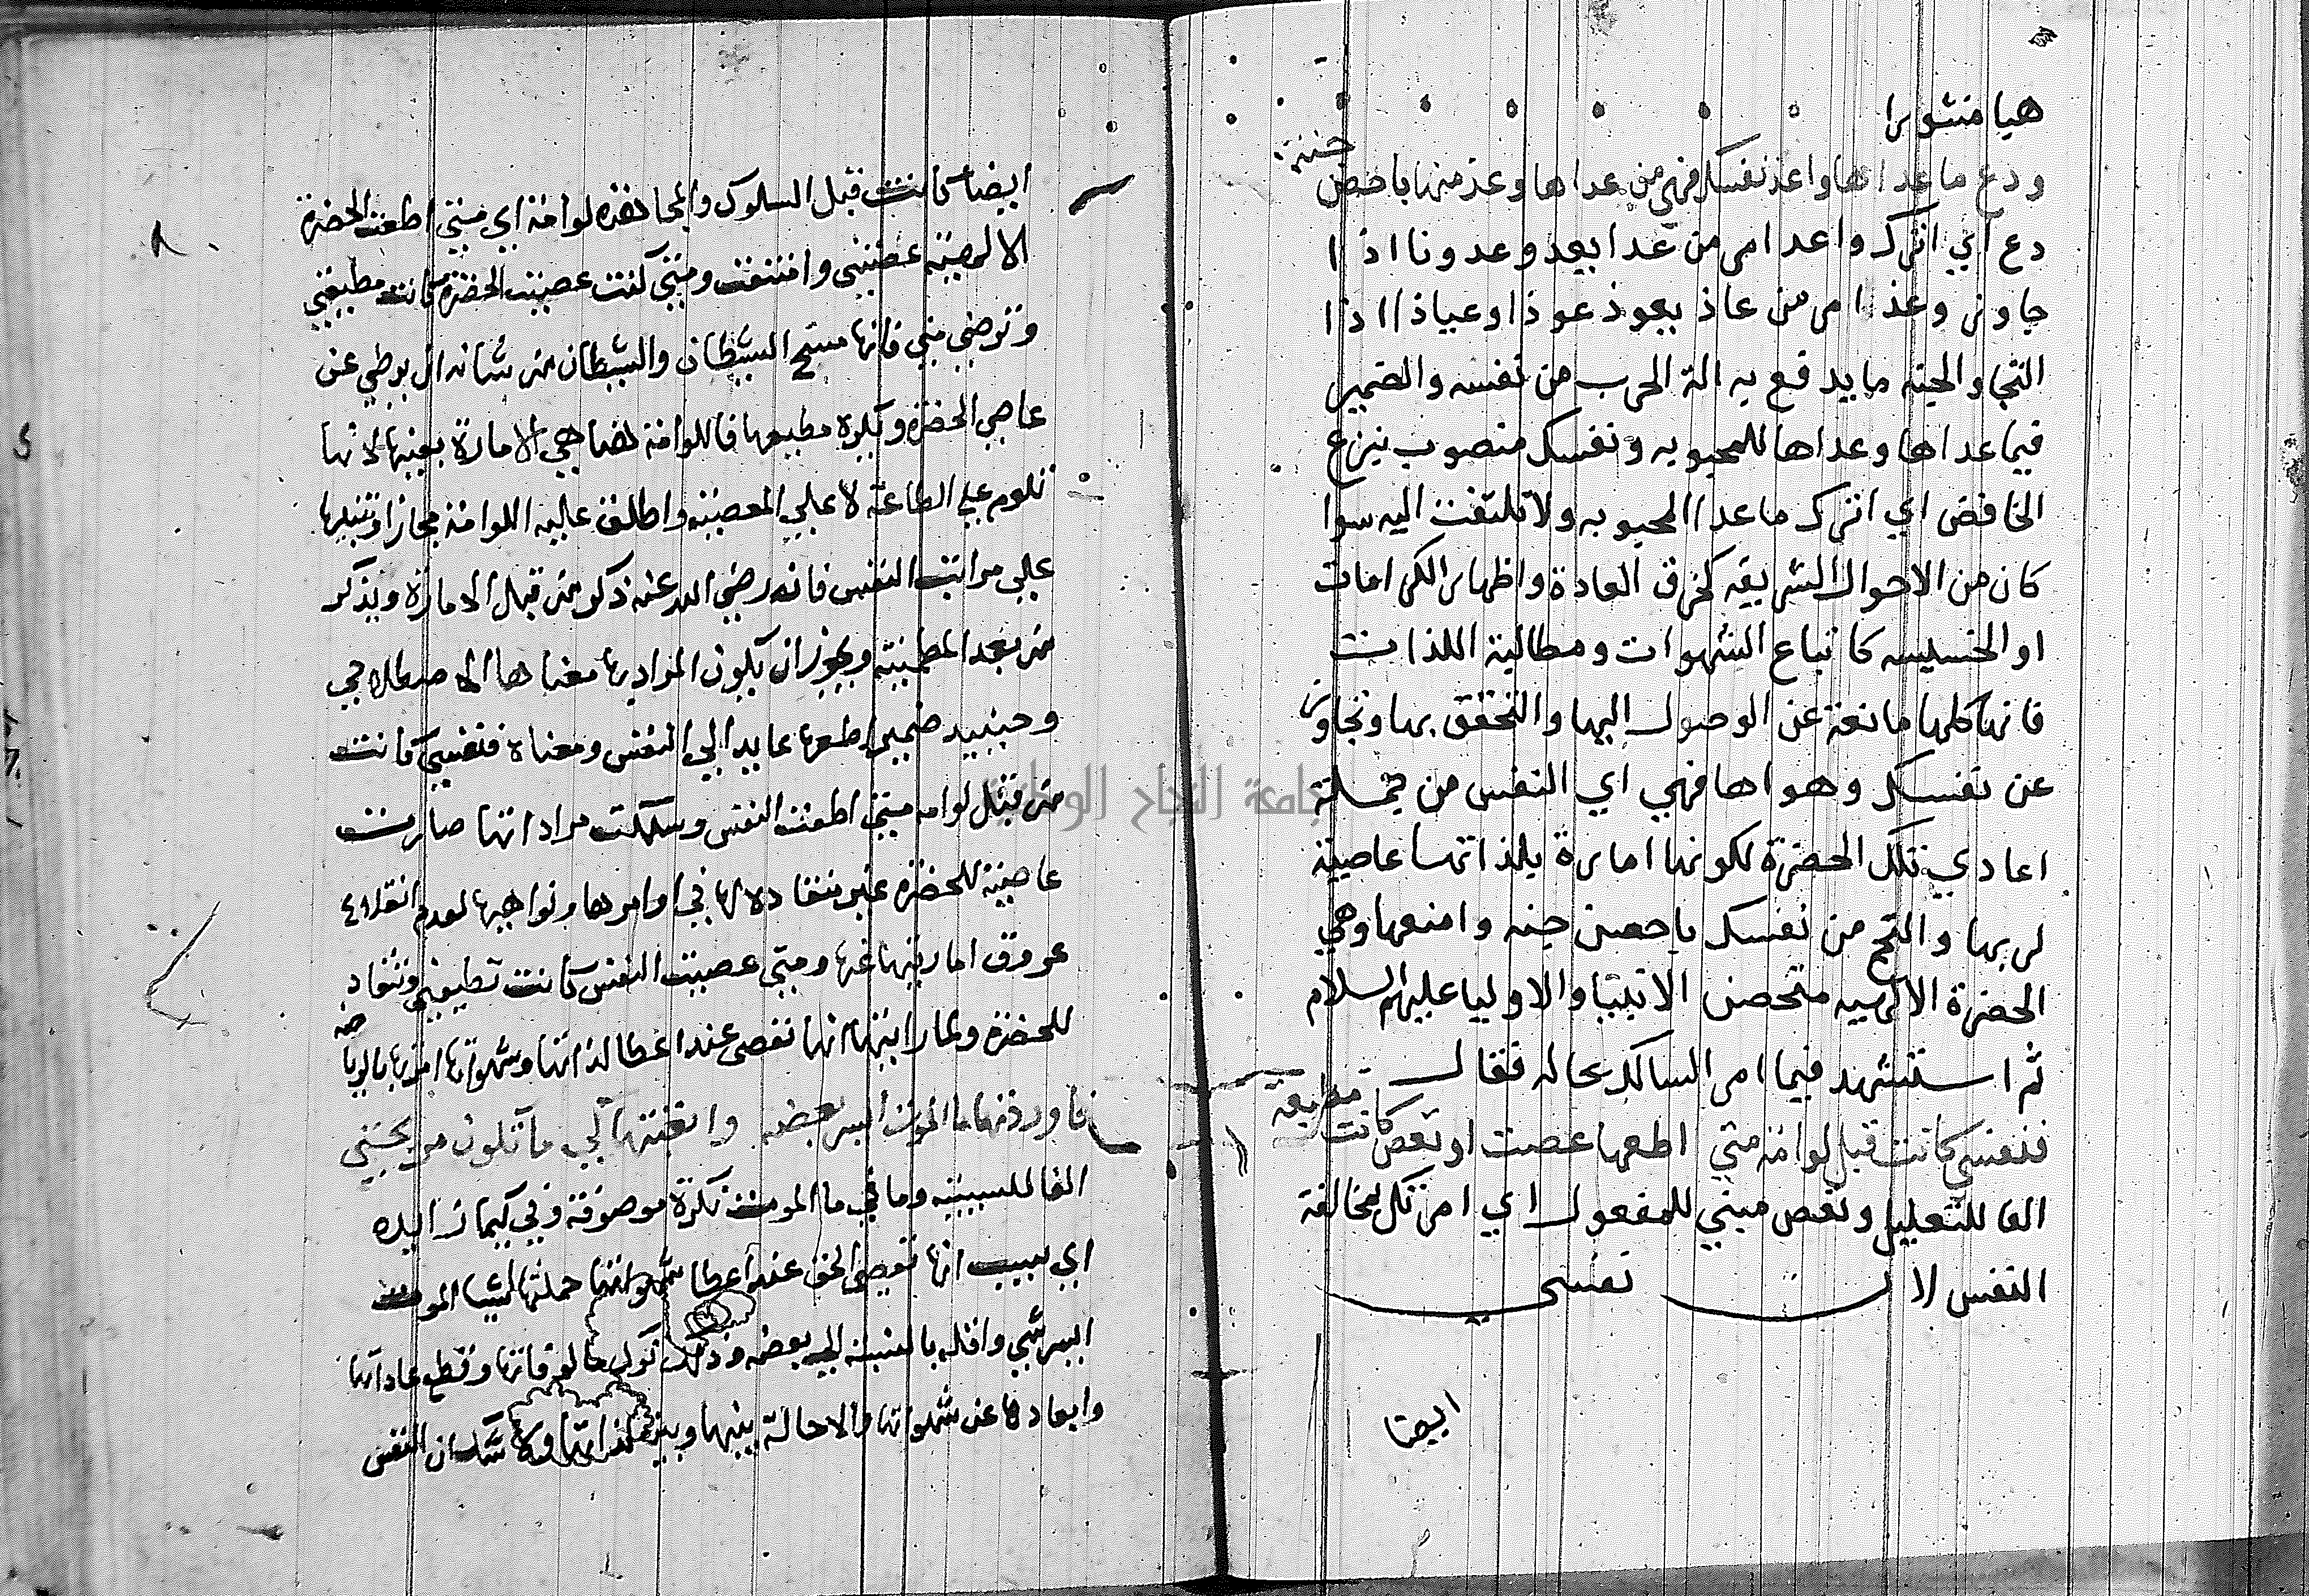 هبا منثورا
ودع ما عداها واعد نفسك فهي من عداها وعذ منها باحصن جنة
دع اي اترك واعد امر من عدا يعدو عدونا اذا
جاوز وعذ امر من عاذ يعوذ عوذا وعياذا اذا
التجا والجنه ما يدفع به الة الحرب من نفسه والضمير
فيما عداها وعداها للمحبوبه ونفسك منصوب بنزع
الخافض اي اترك ما عدا المحبوبه ولا تلتفت اليه سوا
كان من الاحوال الشريفه كخرق العادة واظهار الكرامات
او الخسيسه كاتباع الشهوات ومطالبة اللذات
فانها كلها مانعة عن الوصول اليها والتحقق بها وتجاوز
عن نفسك وهواها فهي اي النفس من جملة
اعادي تلك الحضرة لكونها امارة بلذاتها عاصية
لربها والتج من نفسك باحصن جنه وامنعها وهي
الحضرة الالهيه متحصن الانبيا والاوليا عليهم السلام
ثم استشهد فيما امر السالك بحاله فقال
فنفسي كانت قبل لوامة متي اطعها عصت او تعص كانت مطيعه
الفا للتعليل وتعص مبني للمفعول اي امرتك بمخالفة
النفس لان نفسي
ايضا
ايضا كانت قبل السلوك والمجاهده لوامة اي متي اطعت الحضرة
الالهية عصتني وامتنعت ومتي كنت عصيت الحضرة كانت مطيعتي
وترضي مني فانها الشيطان والشيطان من شانه ان يرضي عن
عاصي الحضرة ويكره مطيعها فاللوامة هي الامارة بعينها لانها
تلوم علي الطاعة لا علي المعصية واطلق عليه اللوامة مجازا وتنبيها
علي مراتب النفس فانه رضي الله عنه ذكر من قبل الامارة ويذكر
من بعد المطمئنة ويجوز ان يكون المراد بها معناها الاصطلاحي
وحينيد ضمير اطعها عايد الي النفس ومعناه فنفسي كانت
من قبل لوامه متي اطعت النفس وسلكت مراداتها صارت
عاصية للحضرة غير منقادة لها في اوامرها ونواهيها لعدم انقلاع
عروق اماريتها عنها ومتي عصيت النفس كانت تطيعني وتنقاد
للحضرة ولما رايتها انها تعصي عند اعطا لذاتها وشهواتها امرتها بالرياضه
فاوردتها ما الموت ايسر بعضه واتعبتها كي ما تكون مريحتي
الفا للسببية وما في ما الموت نكرة موصوفة وفي كيما زايده
اي بسبب انها تعصي الحق عند اعطا شهواتها حملتها شيا الموت
ايسر شي واقله بالنسبة الي بعضه وذلك ترك مالوفاتها وقطع عاداتها
وابعادها عن شهواتها والاحالة بينها وبين لذاتها ولا شك ان النفس
جامعة النجاح الوطنية